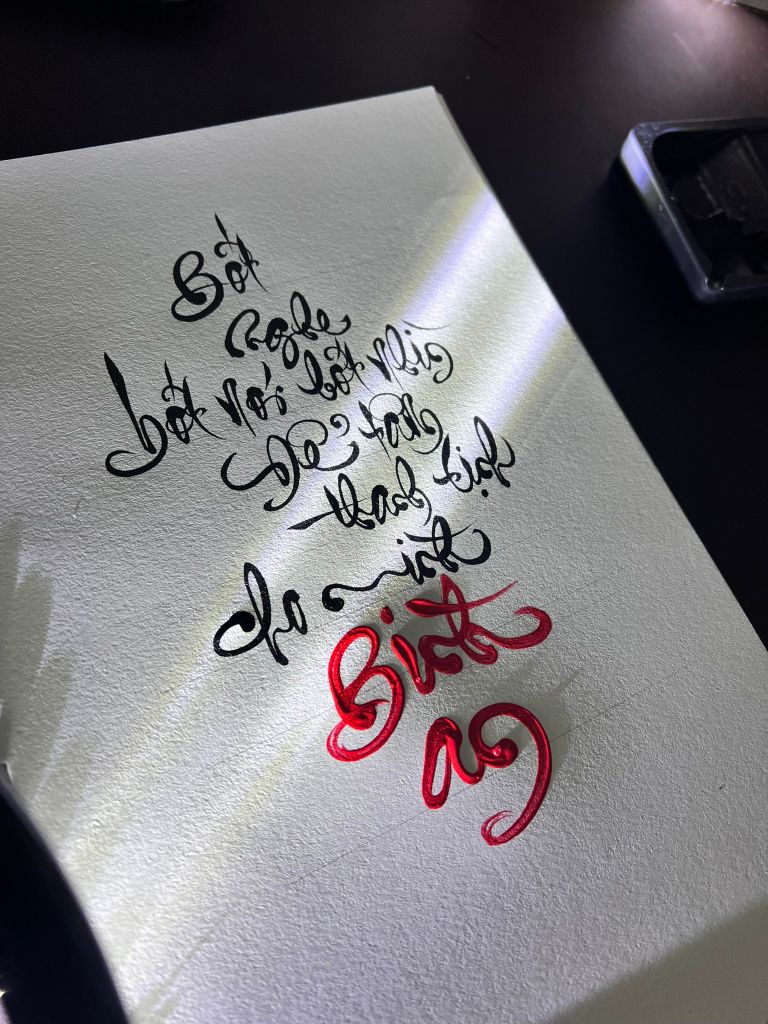 Bớt
nghe
bớt nói bớt nhìn
Để tâm
thanh tịnh
cho mình
Bình
an